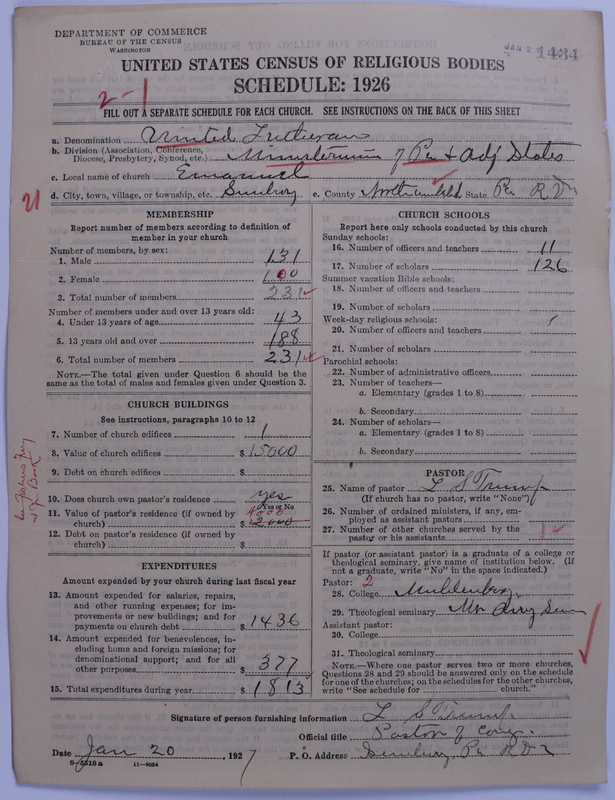 DEPARTMENT OF COMMERCE
BUREAU OF THE CENSUS
WASHINGTON
JAN 2
1434
UNITED STATES CENSUS OF RELIGIOUS BODIES
SCHEDULE: 1926
2-1
FILL OUT A SEPARATE SCHEDULE FOR EACH CHURCH. SEE INSTRUCTIONS ON THE BACK OF THIS SHEET
a. Denomination United Lutheran
b. Division (Association, Conference, Diocese, Presbytery, Synod, etc.) Ministerium of Pa & Adj States
c. Local name of church Emanuel
d. City, town, village, or township, etc. Sunbury e. County Northumberld State Pa R D 2
21
MEMBERSHIP
Report number of members according to definition of
member in your church
Number of members, by sex:
1. Male 131
2. Female 100
3. Total number of members 231
Number of members under and over 13 years old:
4. Under 13 years of age 43
5. 13 years old and over 188
6. Total number of members 231
NOTE.—The total given under Question 6 should be
same as the total of males and females given under Question 3.
CHURCH BUILDINGS
See instructions, paragraphs 10 to 12
7. Number of church edifices 1
8. Value of church edifices $ 15000
9. Debt on church edifices $
10. Does church own pastor's residence yes
Yes or No
11. Value of pastor's residence (if owned by
church) $ 2000 4000
12. Debt on pastor's residence (if owned by
church) $
EXPENDITURES
Amount expended by your church during last fiscal year
13. Amount expended for salaries, repairs,
and other running expenses; for im-
provements or new buildings; and for
payments on church debt $ 1436
14. Amount expended for benevolences, in-
cluding home and foreign missions; for
denominational support; and for all
other purposes $ 377
15. Total expenditures during year $ 1813
CHURCH SCHOOLS
Report here only schools conducted by this church
Sunday schools:
16. Number of officers and teachers 11
17. Number of scholars 126
Summer vacation Bible schools:
18. Number of officers and teachers
19. Number of scholars
Week-day religious schools:
20. Number of officers and teachers
21. Number of scholars
Parochial schools:
22. Number of administrative officers
23. Number of teachers—
a. Elementary (grades 1 to 8)
b. Secondary
24. Number of scholars—
a. Elementary (grades 1 to 8)
b. Secondary
PASTOR
25. Name of pastor L S Trump
(If church has no pastor, write "None")
26. Number of ordained ministers, if any, em-
ployed as assistant pastors
27. Number of other churches served by the
pastor or his assistants 1
If pastor (or assistant pastor) is a graduate of a college or
theological seminary, give name of institution below. (If
not a graduate, write "No" in the space indicated.)
Pastor: 2
28. College Muhlenberg
29. Theological seminary Mt Airy Sem
Assistant pastor:
30. College
31. Theological seminary
NOTE.—Where one pastor serves two or more churches,
Questions 28 and 29 should be answered only on the schedule
for one of the churches; on the schedules for the other churches,
write "See schedule for church."
Signature of person furnishing information L S Trump
Official title Pastor of Cong.
Date Jan 20, 1927 P. O. Address Sunbury Pa R D 2
8—5518a 11—9034